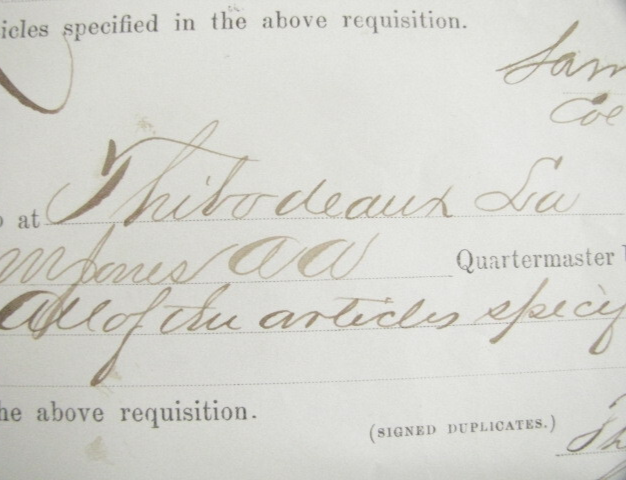 icles specified in the above requisition.
Sam
Coe
at Thibodeaux La
Jones AA Quartermaster
All of the articles specif
he above requisition.
(SIGNED DUPLICATES.) Th